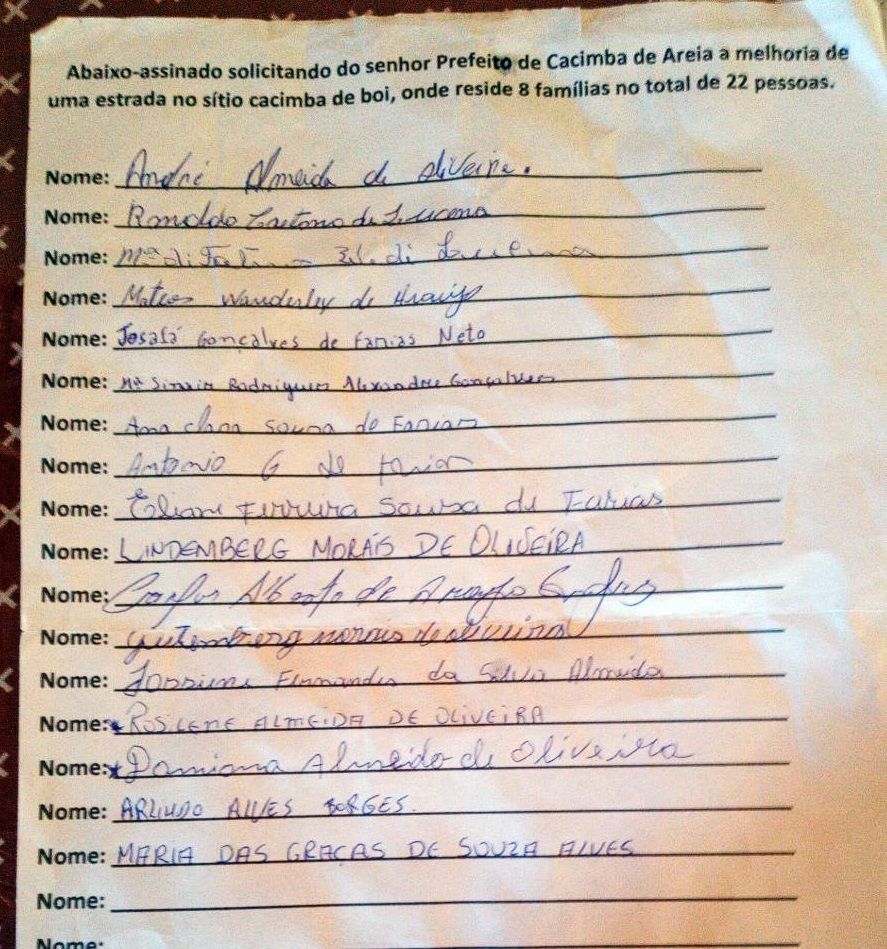 Abaixo-assinado solicitando do senhor Prefeito de Cacimba de Areia a melhoria de
uma estrada no sítio cacimba de boi, onde reside 8 famílias no total de 22 pessoas.
Nome: André Almeida de Oliveira.
Nome: Ronaldo Caetano de Lucena
Nome: Mª di Fatima di
Nome: Mateus Wanderley de Araujo
Nome: Josafá Gonçalves de Farias Neto
Nome: Mª Rodrigues Alexandre Gonçalves
Nome: Ana Clara Sousa de Farias
Nome: Antonio G de Farias
Nome: Eliane Ferreira Sousa de Farias
Nome: LINDEMBERG MORAIS DE OLIVEIRA
Nome: Carlos Alberto de Araujo
Nome: gutemberg morais de oliveira
Nome: Fernandes da Silva Almeida
Nome: ROSILENE ALMEIDA DE OLIVEIRA
Nome: Damiana Almeida de Oliveira
Nome: ARLINDO ALVES BORGES.
Nome: MARIA DAS GRAÇAS DE SOUZA ALVES
Nome:
Nome: